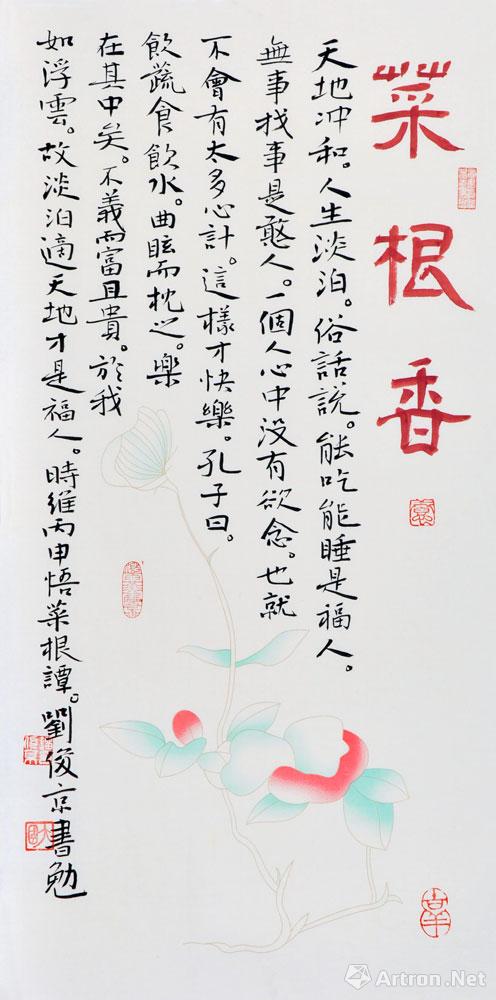 菜根香
天地冲和。人生淡泊。俗話說。能吃能睡是福人。
無事找事是憨人。一個人心中没有欲念。也就
不會有太多心計。這樣才快樂。孔子曰。
飲蔬食飲水。曲眩而枕之。樂
在其中矣。不義而富且貴。於我
如浮雲。故淡泊適天地才是福人。時維丙申悟菜根譚。劉俊京書勉
Artron.Net